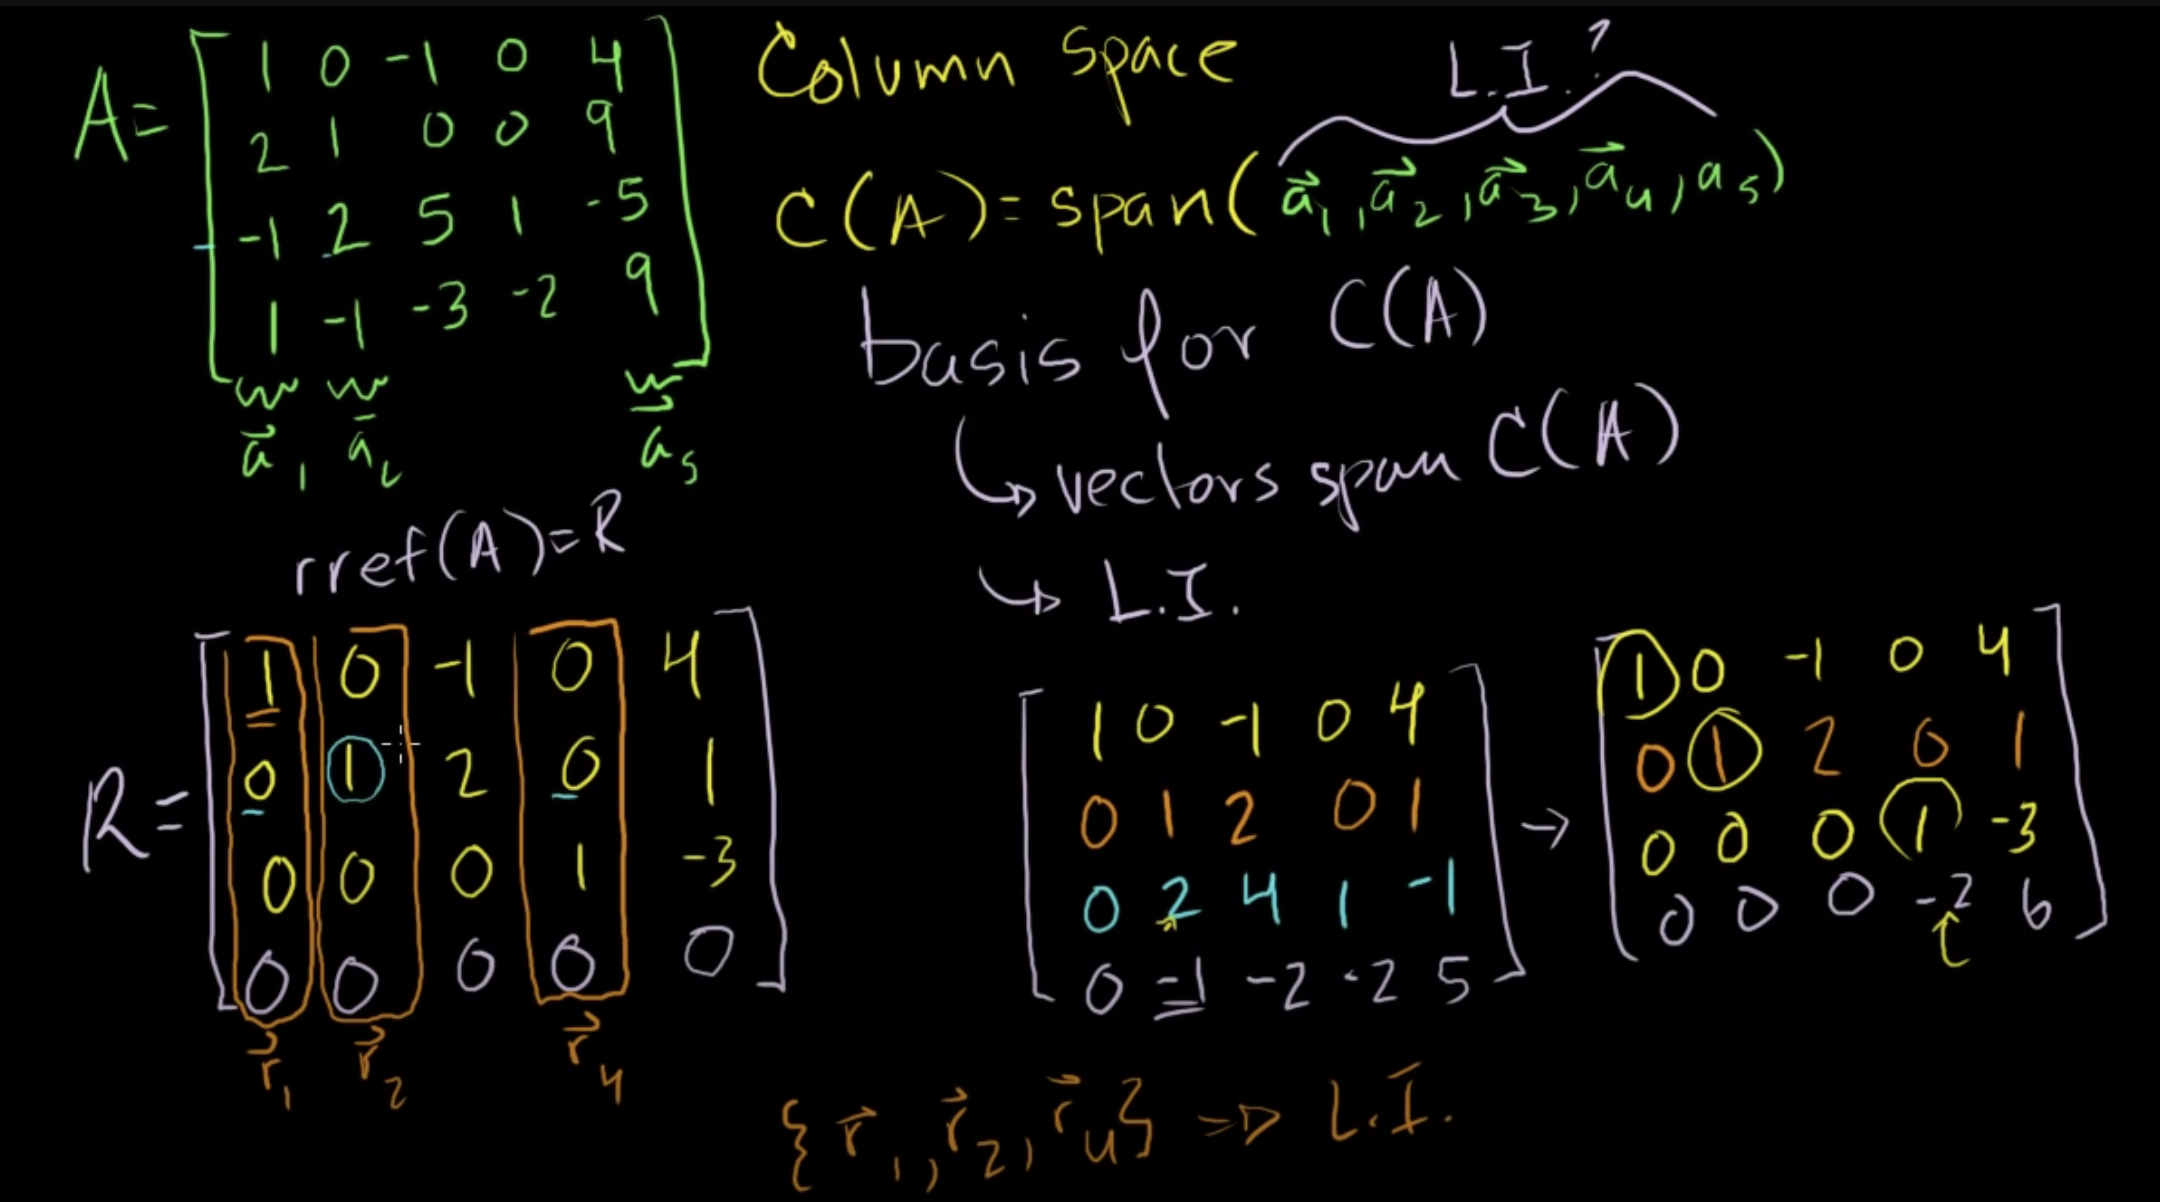 A = [ 1 0 -1 0 4
2 1 0 0 9
-1 2 5 1 -5
1 -1 -3 -2 9 ]
a⃗₁ a⃗₂ a⃗₅
Column space
L.I.?
C(A) = span(a⃗₁, a⃗₂, a⃗₃, a⃗₄, a₅)
basis for C(A)
↳ vectors span C(A)
↳ L.I.
rref(A) = R
R = [ 1 0 -1 0 4
0 1 2 0 1
0 0 0 1 -3
0 0 0 0 0 ]
r⃗₁ r⃗₂ r⃗₄
[ 1 0 -1 0 4
0 1 2 0 1
0 2 4 1 -1
0 -1 -2 -2 5 ]
→
[ 1 0 -1 0 4
0 1 2 0 1
0 0 0 1 -3
0 0 0 -2 6 ]
{r⃗₁, r⃗₂, r⃗₄} ⇒ L.I.